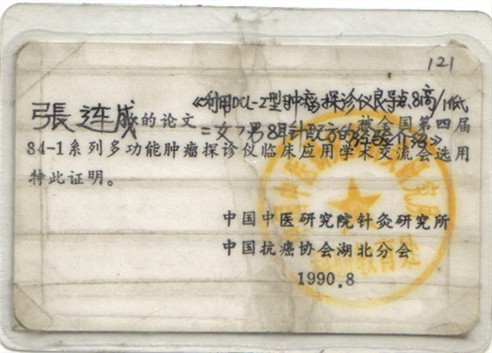 121
《利用DCL-Z型肿瘤探诊仪良导点8高/低
張连成的论文二女7男8用针散方的 被全国第四届
84-1系列多功能肿瘤探诊仪临床应用学术交流会选用
特此证明。
中国中医研究院针灸研究所
中国抗癌协会湖北分会
1990.8